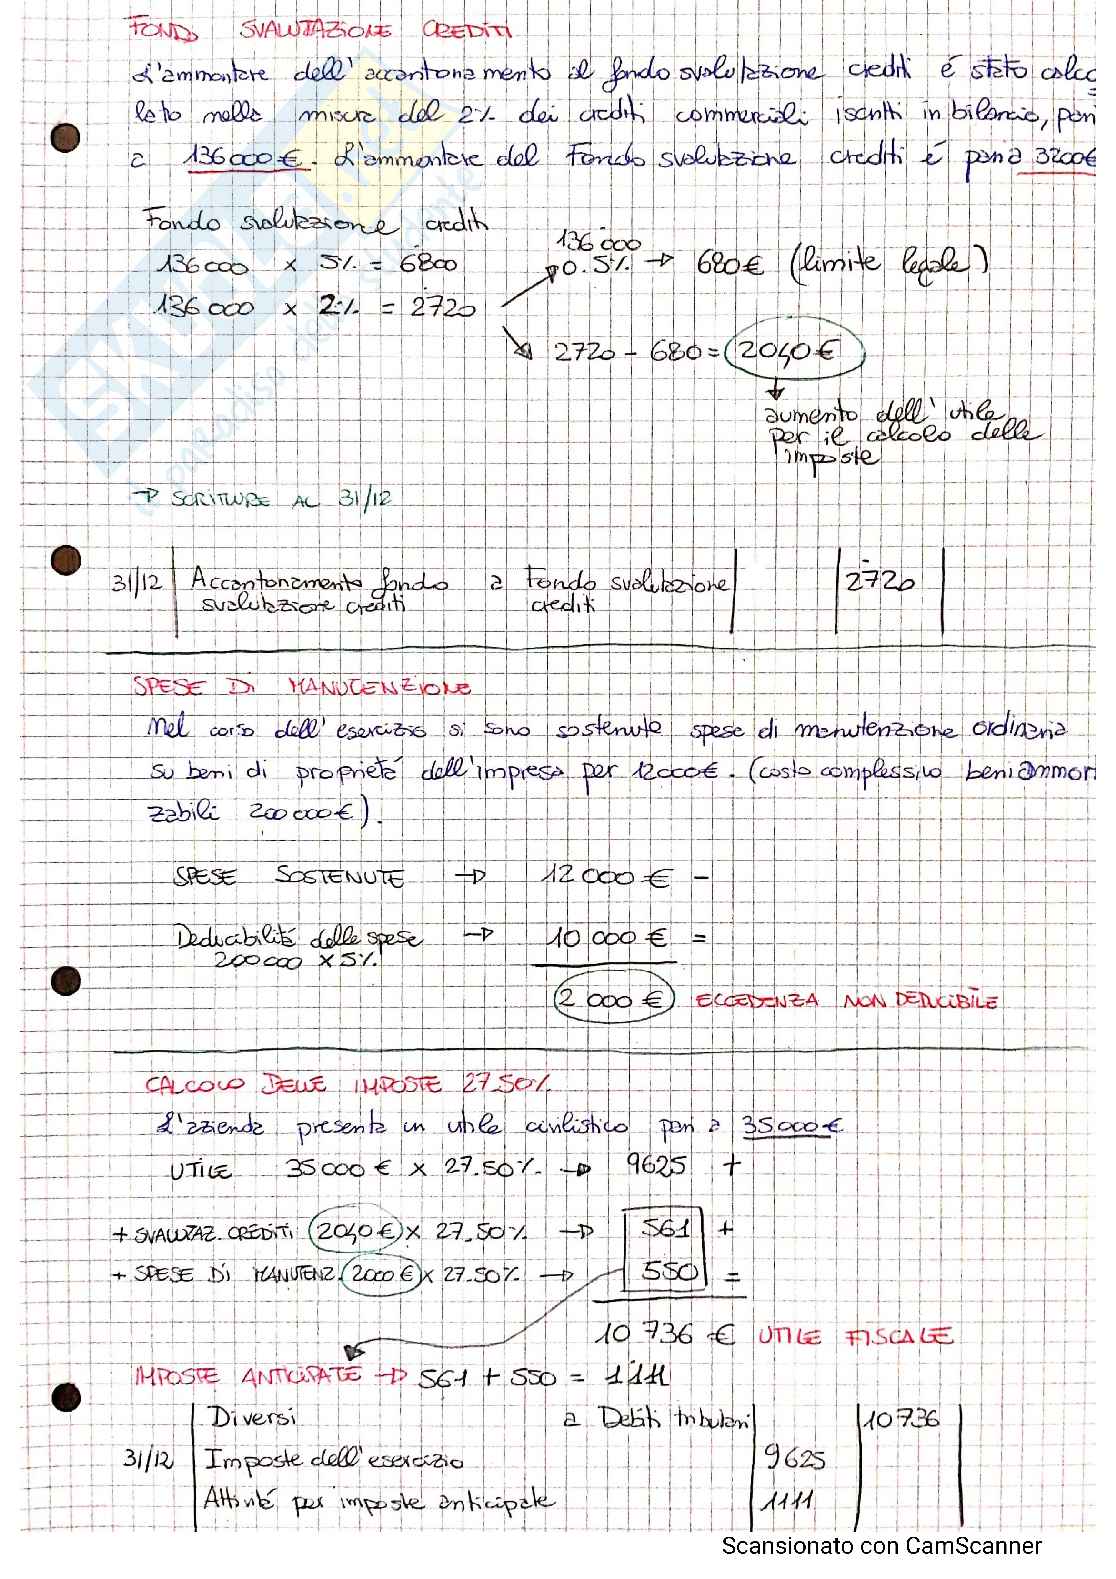 FONDO SVALUTAZIONE CREDITI
L'ammontare dell'accantonamento al fondo svalutazione crediti é stato calco
lato nella misura del 2% dei crediti commerciali iscritti in bilancio, pari
a 136000 €. L'ammontare del Fondo svalutazione crediti é pari a 3200€
Fondo svalutazione crediti
136000 x 5% = 6800
136 000
0.5% → 680 € (limite legale)
136000 x 2% = 2720
2720 - 680 = 2040 €
aumento dell'utile
per il calcolo delle
imposte
→ SCRITTURE AL 31/12
31/12 Accantonamento fondo a Fondo svalutazione 2720
svalutazione crediti crediti
SPESE DI MANUTENZIONE
Nel corso dell'esercizio si sono sostenute spese di manutenzione ordinaria
su beni di proprietá dell'impresa per 12000€. (costo complessivo beni ammor
tizzabili 200 000 €).
SPESE SOSTENUTE → 12 000 € -
Deducibilitá delle spese → 10 000 € =
200000 x 5%
2 000 € ECCEDENZA NON DEDUCIBILE
CALCOLO DELLE IMPOSTE 27.50%
L'azienda presenta un utile civilistico pari a 35000 €
UTILE 35000 € x 27.50% → 9625 +
+ SVALUTAZ. CREDITI 2040 € x 27.50% → 561 +
+ SPESE DI MANUTENZ. 2000 € x 27.50% → 550 =
10 736 € UTILE FISCALE
IMPOSTE ANTICIPATE → 561 + 550 = 1111
Diversi a Debiti tributari 10736
31/12 Imposte dell'esercizio 9625
Attivitá per imposte anticipate 1111
Scansionato con CamScanner